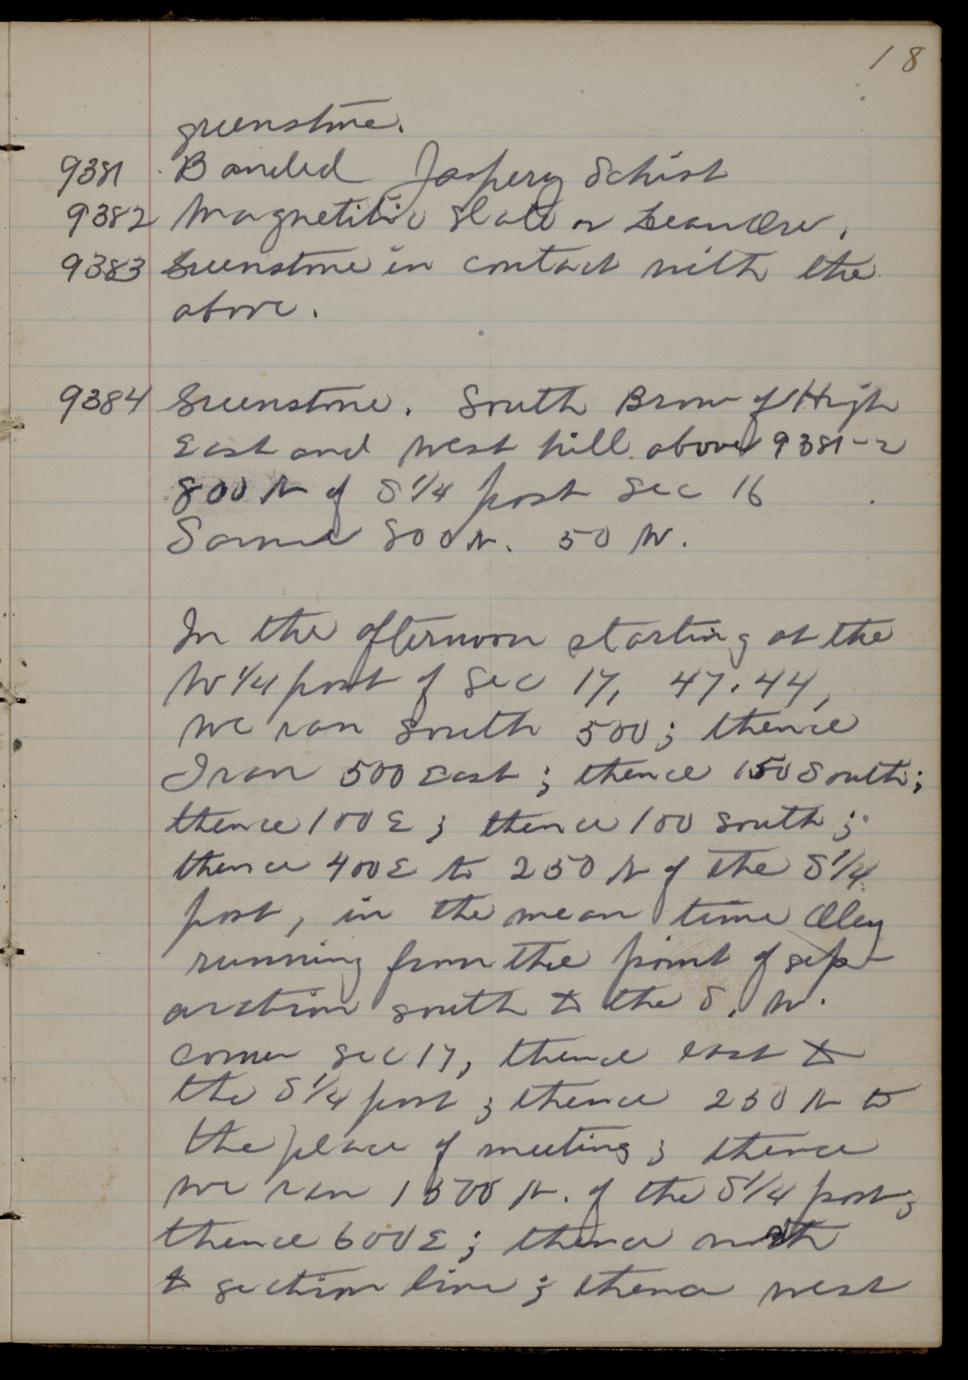 18
greenstone.
9381 Banded Jaspery Schist
9382 Magnetitic Slate or Lean Ore.
9383 Greenstone in contact with the
above.
9384 Greenstone. South Brow of High
East and West hill above 9381-2
800 N of S 1/4 post Sec 16
Same 800 N. 50 W.
In the afternoon starting at the
W 1/4 post of Sec 17, 47.44,
we ran south 500; thence
I ran 500 East; thence 150 South;
thence 100 E; thence 100 south;
thence 400 E to 250 N of the S 1/4
post, in the mean time Oley
running from the point of sep-
aration south to the S. W.
corner Sec 17, thence east to
the S 1/4 post; thence 250 N to
the place of meeting; thence
we ran 1500 N. of the S 1/4 post;
thence 600 E; thence north
to section line; thence west